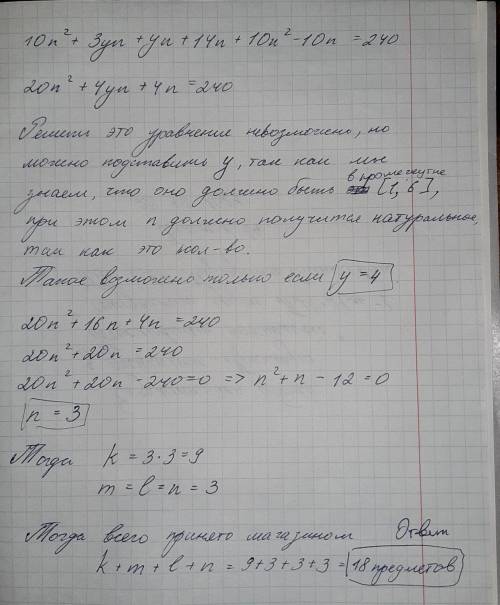 10n² + 3yn + yn + 14n + 10n² - 10n = 240
20n² + 4yn + 4n = 240
Решить это уравнение невозможно, но
можно подставить y, так как мы
знаем, что оно должно быть в промежутке [1, 6],
при этом n должно получится натуральное,
так как это кол-во.
Такое возможно только если y = 4
20n² + 16n + 4n = 240
20n² + 20n = 240
20n² + 20n - 240 = 0 => n² + n - 12 = 0
n = 3
Тогда k = 3·3 = 9
m = l = n = 3
Тогда всего принято магазином Ответ
k + m + l + n = 9+3+3+3 = 18 предметов